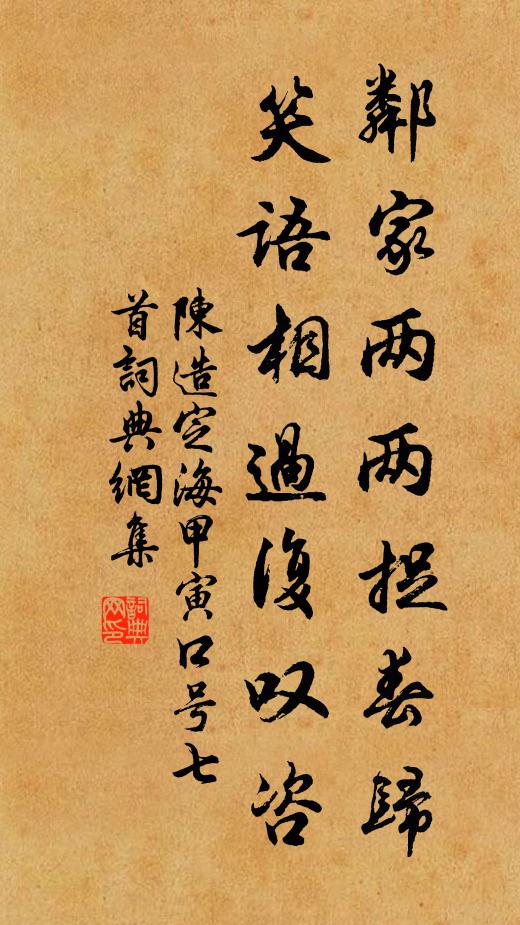 鄰家两两捉春歸
笑語相過復叹咨
陳造定海甲寅口号七
首詞典網集
詞典
网印